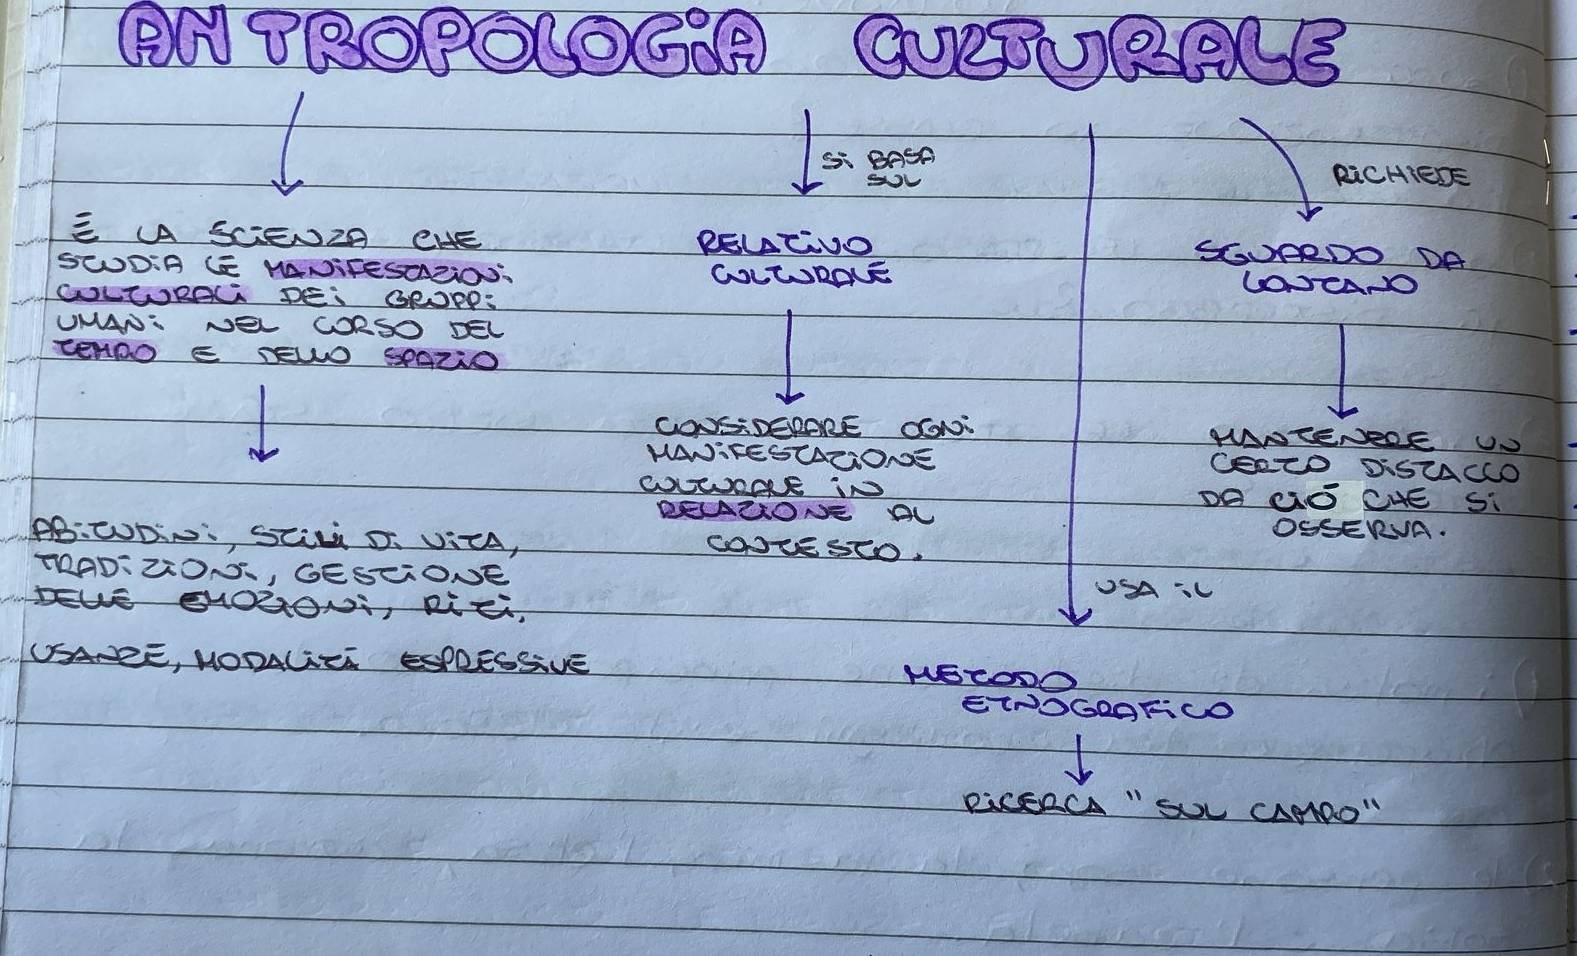 ANTROPOLOGiA CULTURALE
Si BASA
SUL
RiCHIEDE
É LA SCiENZA CHE
STUDiA LE MANiFESTAZiONi
CULTURALi DEi GRUPPi
UMANi NEL CORSO DEL
TEMPO E DELLO SPAZiO
ABiTUDiNi, STiLi Di ViTA,
TRADiZiONi, GESTiONE
DELLE EMOZiONi, RiTi,
USANZE, MODALiTÁ ESPRESSiVE
RELATiVO
CULTURALE
CONSiDERARE OGNi
MANiFESTAZiONE
CULTURALE iN
RELAZiONE AL
CONTESTO.
SGUARDO DA
LONTANO
MANTENERE UN
CERTO DiSTACCO
DA CiÓ CHE Si
OSSERVA.
USA iL
METODO
ETNOGRAFiCO
RiCERCA "SUL CAMPO"